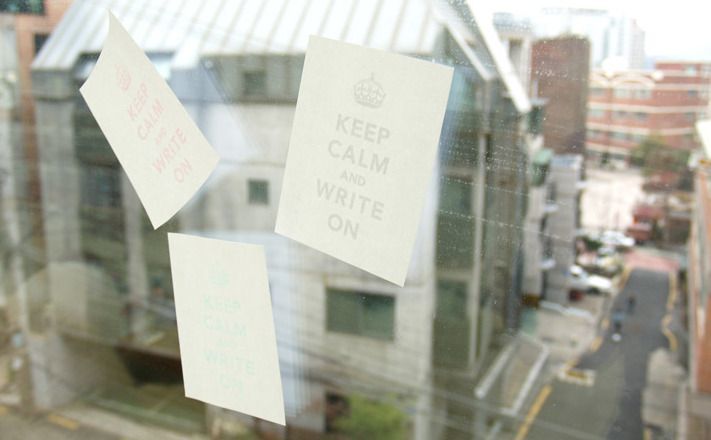 KEEP
CALM
AND
WRITE
ON
KEEP
CALM
AND
WRITE
ON
KEEP
CALM
AND
WRITE
ON